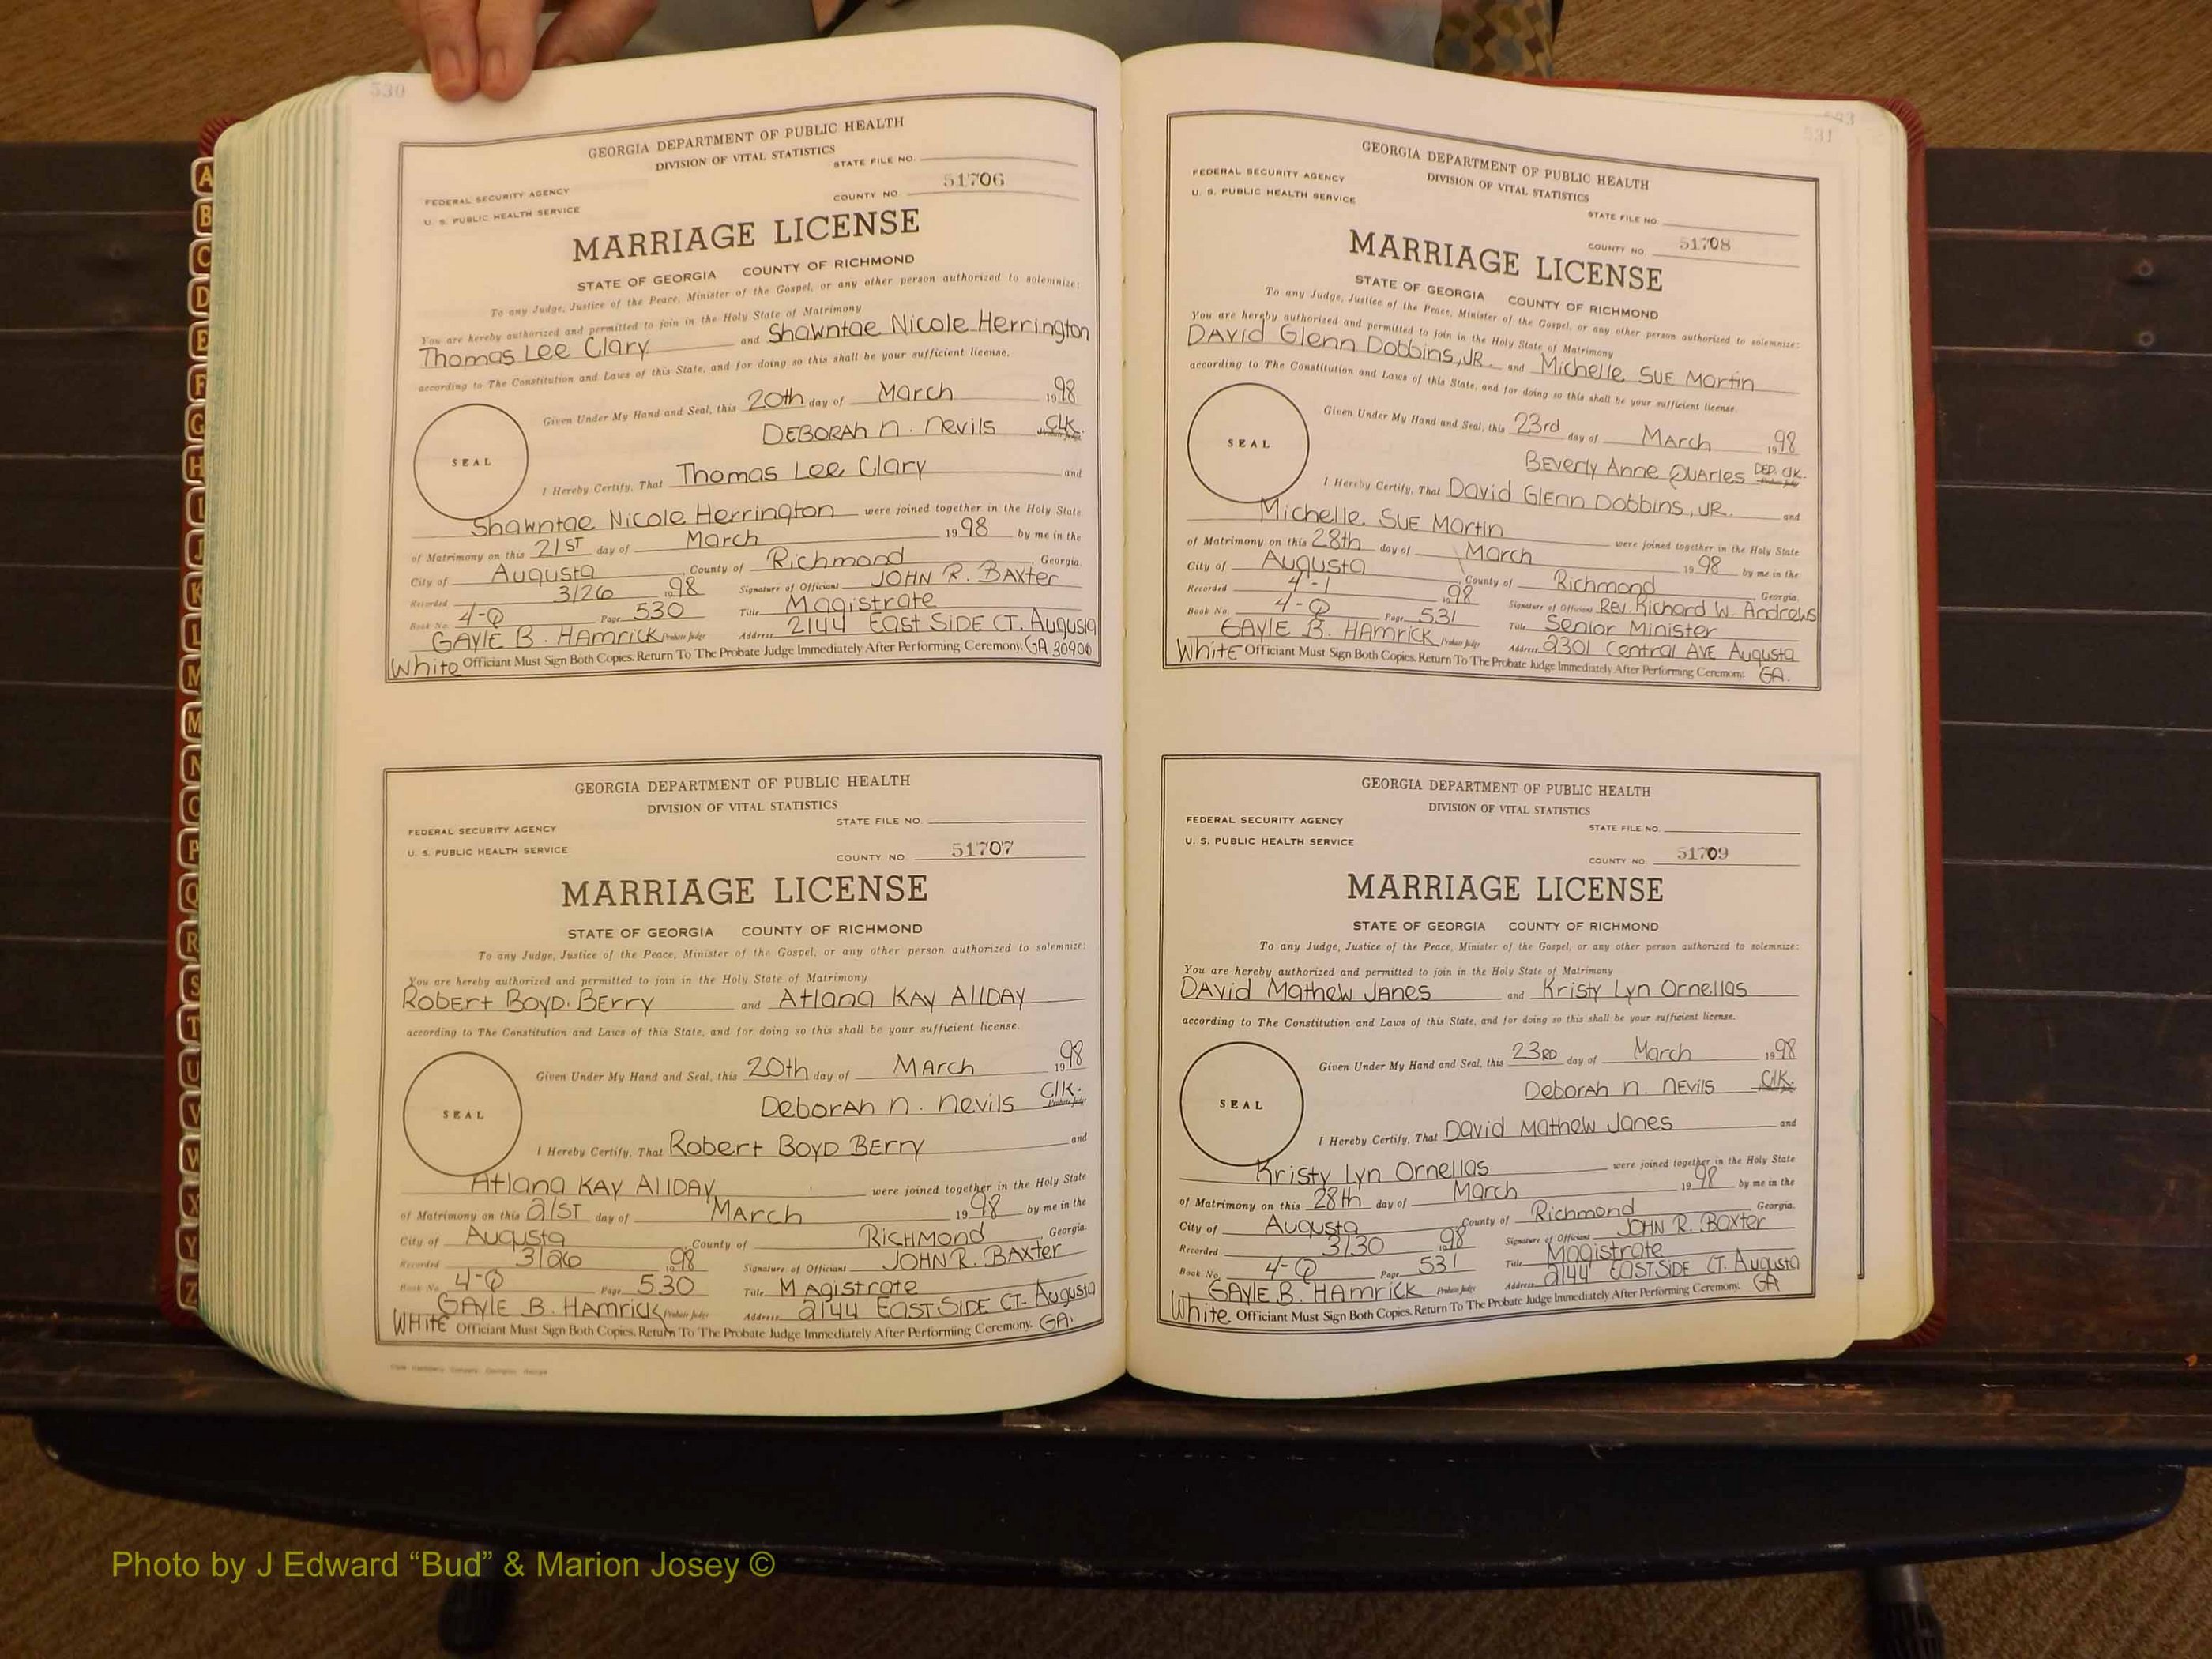 530
GEORGIA DEPARTMENT OF PUBLIC HEALTH
DIVISION OF VITAL STATISTICS
STATE FILE NO.
FEDERAL SECURITY AGENCY
U. S. PUBLIC HEALTH SERVICE
COUNTY NO. 51706
MARRIAGE LICENSE
STATE OF GEORGIA COUNTY OF RICHMOND
To any Judge, Justice of the Peace, Minister of the Gospel, or any other person authorized to solemnize:
You are hereby authorized and permitted to join in the Holy State of Matrimony
Thomas Lee Clary and Shawntae Nicole Herrington
according to The Constitution and Laws of this State, and for doing so this shall be your sufficient license.
Given Under My Hand and Seal, this 20th day of March 1998
DEBORAH N. Nevils CLK.
SEAL
I Hereby Certify, That Thomas Lee Clary and
Shawntae Nicole Herrington were joined together in the Holy State
of Matrimony on this 21ST day of March 1998 by me in the
City of Augusta County of Richmond Georgia.
Recorded 3/26 1998 Signature of Officiant JOHN R. BAXter
Book No. 4-Q Page 530 Title Magistrate
GAYLE B. HAMRICK Probate Judge Address 2144 EAST SIDE CT. Augusta
White Officiant Must Sign Both Copies. Return To The Probate Judge Immediately After Performing Ceremony. GA 30906
GEORGIA DEPARTMENT OF PUBLIC HEALTH
DIVISION OF VITAL STATISTICS
STATE FILE NO.
FEDERAL SECURITY AGENCY
U. S. PUBLIC HEALTH SERVICE
COUNTY NO. 51707
MARRIAGE LICENSE
STATE OF GEORGIA COUNTY OF RICHMOND
To any Judge, Justice of the Peace, Minister of the Gospel, or any other person authorized to solemnize:
You are hereby authorized and permitted to join in the Holy State of Matrimony
Robert Boyd Berry and Atlana KAY AllDAY
according to The Constitution and Laws of this State, and for doing so this shall be your sufficient license.
Given Under My Hand and Seal, this 20th day of MArch 1998
DeborAH N. Nevils ClK. Probate Judge
SEAL
I Hereby Certify, That Robert BoyD BErry and
Atlana KAY AllDAY were joined together in the Holy State
of Matrimony on this 21ST day of MArch 1998 by me in the
City of Augusta County of RICHMond Georgia.
Recorded 3/26 1998 Signature of Officiant JOHN R. BAXter
Book No. 4-Q Page 530 Title MAgistrate
GAYLE B. HAMRICK Probate Judge Address 2144 EAST SIDE CT. Augusta
WHITE Officiant Must Sign Both Copies. Return To The Probate Judge Immediately After Performing Ceremony. GA.
531
GEORGIA DEPARTMENT OF PUBLIC HEALTH
DIVISION OF VITAL STATISTICS
FEDERAL SECURITY AGENCY
U. S. PUBLIC HEALTH SERVICE
STATE FILE NO.
COUNTY NO. 51708
MARRIAGE LICENSE
STATE OF GEORGIA COUNTY OF RICHMOND
To any Judge, Justice of the Peace, Minister of the Gospel, or any other person authorized to solemnize:
You are hereby authorized and permitted to join in the Holy State of Matrimony
DAVID Glenn Dobbins, JR. and Michelle SUE Martin
according to The Constitution and Laws of this State, and for doing so this shall be your sufficient license.
Given Under My Hand and Seal, this 23rd day of MArch 1998
BEverly Anne QUArles DEP. ClK. Probate Judge
SEAL
I Hereby Certify, That David GlEnn Dobbins, JR. and
Michelle SUE Martin were joined together in the Holy State
of Matrimony on this 28th day of March 1998 by me in the
City of Augusta County of Richmond Georgia.
Recorded 4-1 1998 Signature of Officiant REV. Richard W. Andrews
Book No. 4-Q Page 531 Title Senior Minister
GAYLE B. HAMRICK Probate Judge Address 2301 Central AVE Augusta
White Officiant Must Sign Both Copies. Return To The Probate Judge Immediately After Performing Ceremony. GA.
GEORGIA DEPARTMENT OF PUBLIC HEALTH
DIVISION OF VITAL STATISTICS
FEDERAL SECURITY AGENCY
STATE FILE NO.
U. S. PUBLIC HEALTH SERVICE
COUNTY NO. 51709
MARRIAGE LICENSE
STATE OF GEORGIA COUNTY OF RICHMOND
To any Judge, Justice of the Peace, Minister of the Gospel, or any other person authorized to solemnize:
You are hereby authorized and permitted to join in the Holy State of Matrimony
DAVID Mathew JANES and Kristy Lyn Ornellas
according to The Constitution and Laws of this State, and for doing so this shall be your sufficient license.
Given Under My Hand and Seal, this 23RD day of March 1998
DeborAH N. NEVils ClK.
SEAL
I Hereby Certify, That David MAthew Janes and
Kristy Lyn Ornellas were joined together in the Holy State
of Matrimony on this 28th day of March 1998 by me in the
City of Augusta County of Richmond Georgia.
Recorded 3/30 1998 Signature of Officiant JOHN R. BAXter
Book No. 4-Q Page 531 Title Magistrate
GAYLE B. HAMRICK Probate Judge Address 2144 EASTSIDE CT. Augusta
White Officiant Must Sign Both Copies. Return To The Probate Judge Immediately After Performing Ceremony. GA
A
B
C
D
E
F
G
H
I
J
K
L
M
M
N
O
P
Q
R
S
T
U
V
W
X
Y
Z
Photo by J Edward “Bud” & Marion Josey ©